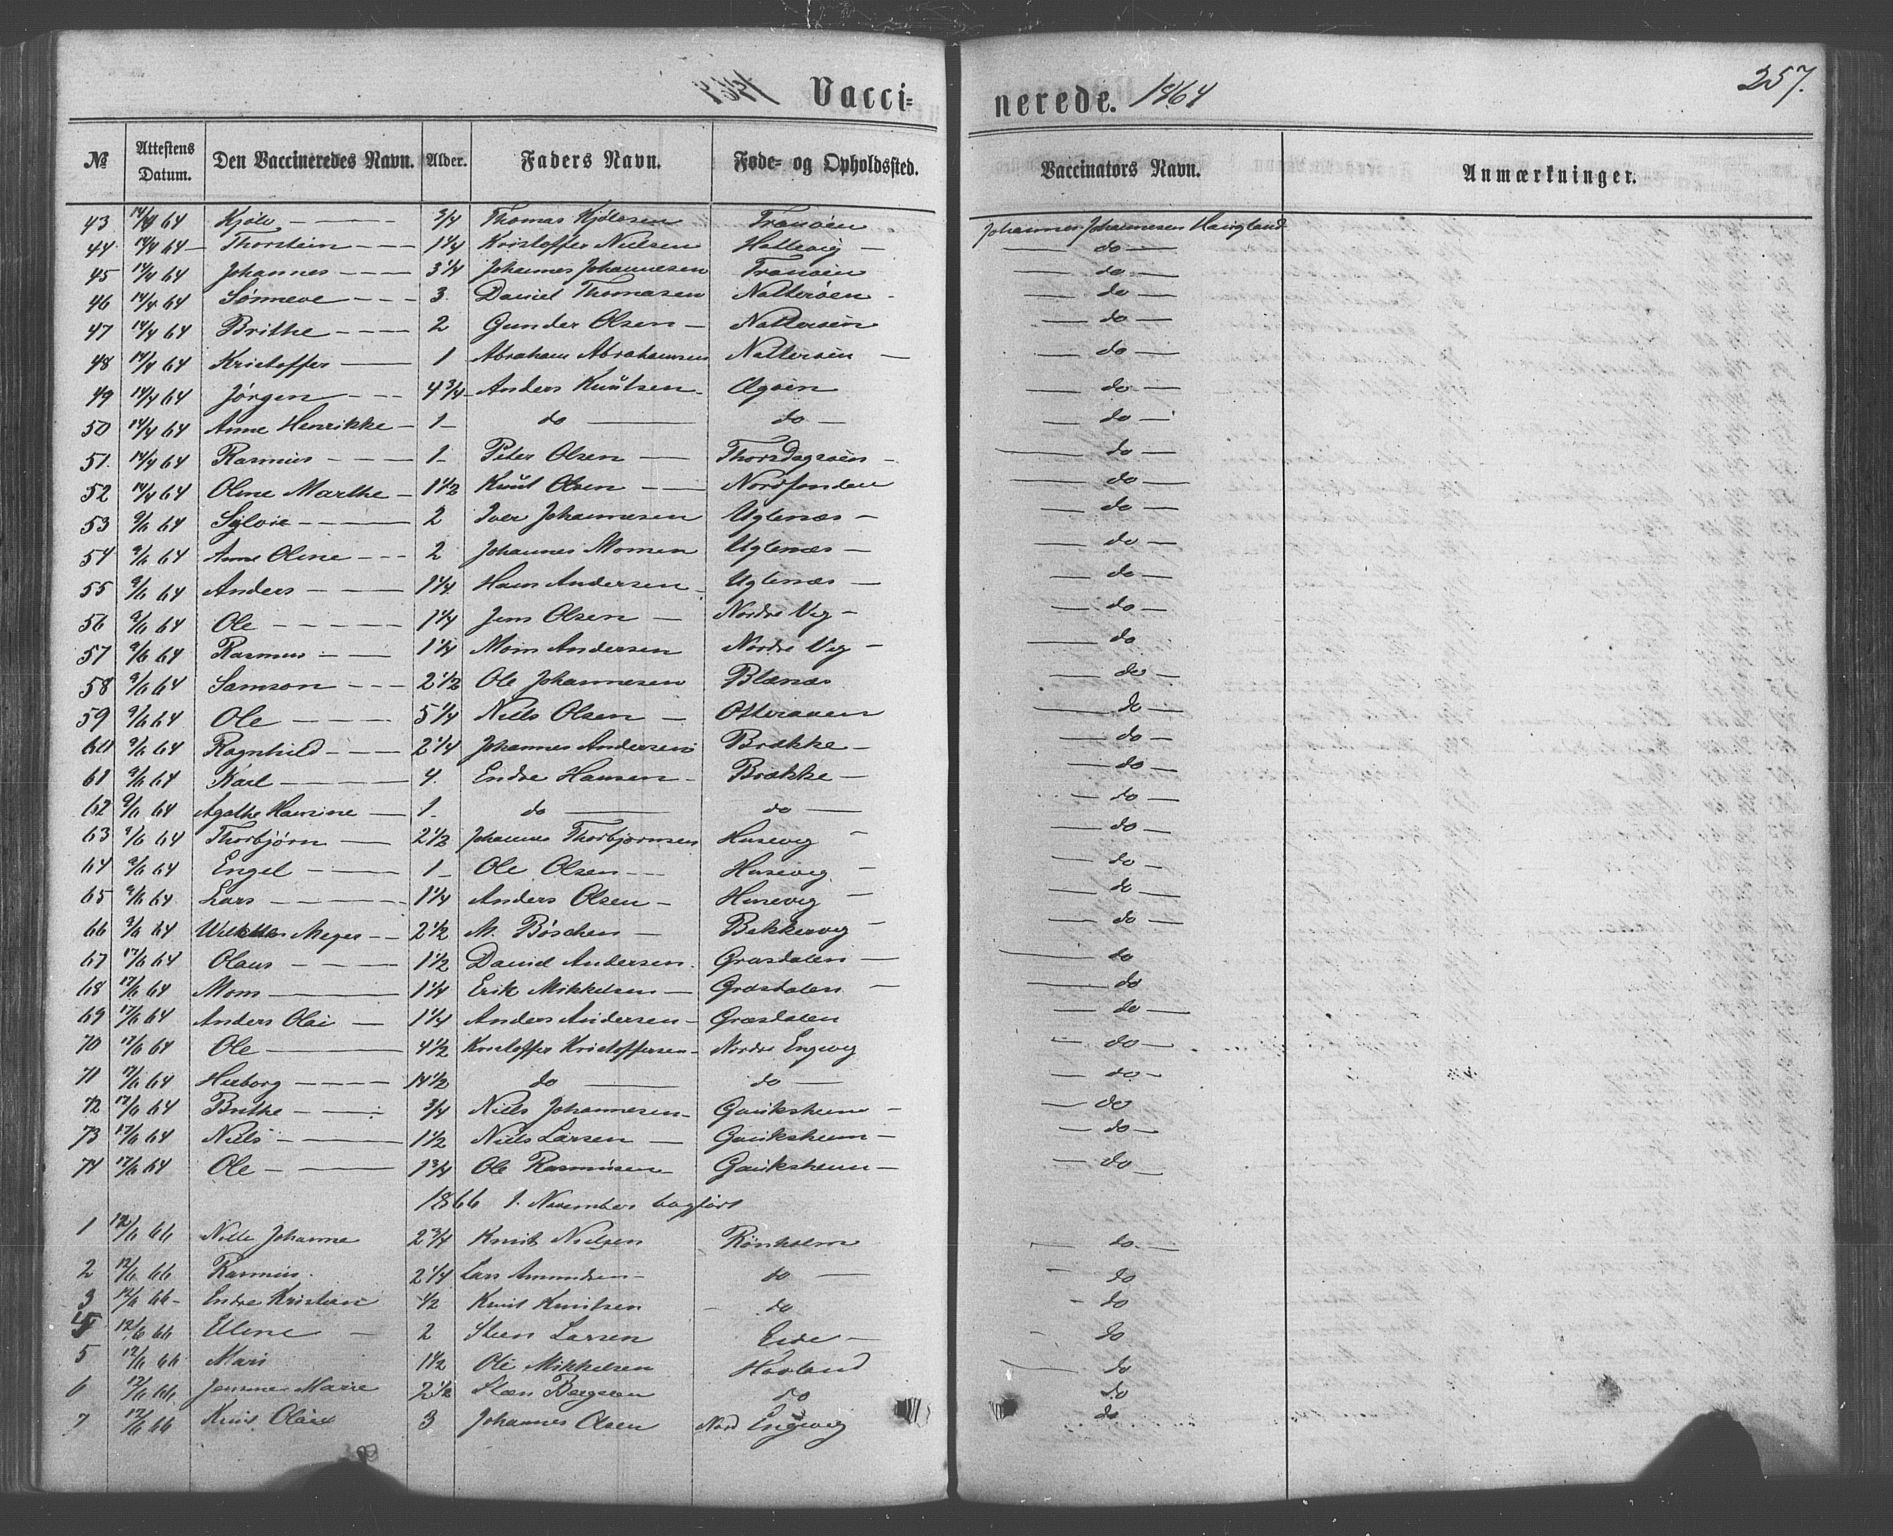 Vacci=
nerede. 1864
257.
№ Attestens Datum. Den Vaccineredes Navn. Alder. Faders Navn. Føde- og Opholdssted. Vaccinators Navn. Anmærkninger.
43 14/4 64 3/4 Thomas Johannes Johannesen
44 14/4 64 Thorstein 1 1/4 Kristoffer Nielsen do
45 14/4 64 Johannes 3 1/4 Johannes Johannesen do
46 14/4 64 3 Daniel Thomasen do
47 14/4 64 Brithe 2 Gunder Olsen do
48 14/4 64 Kristoffer 1 Abraham Abrahamsen do
49 14/4 64 Jørgen 4 3/4 Anders Knutsen do
50 14/4 64 Anne Henrikke 1 do do do
51 14/4 64 Rasmus 1 Peter Olsen do
52 14/4 64 Oline Marthe 1 1/2 Knut Olsen do
53 9/6 64 2 Iver Johannesen Uglenæs do
54 9/6 64 Anne Oline 2 Johannes Monsen Uglenæs do
55 9/6 64 Anders 1 1/4 Hans Andersen Uglenæs do
56 9/6 64 Ole 1 1/4 Jens Olsen Nordre Vig do
57 9/6 64 Rasmus 1 1/4 Mons Andersen Nordre Vig do
58 9/6 64 Samson 2 1/2 Ole Johannesen do
59 9/6 64 Ole 5 1/4 Niels Olsen do
60 9/6 64 Ragnhild 2 1/4 Johannes Andersen Brække do
61 9/6 64 Karl 4 Endre Hansen Brække do
62 9/6 64 Agathe 1 do do do
63 9/6 64 Thorbjørn 2 1/2 Johannes Thorbjørnsen Husevig do
64 9/6 64 Engel 1 Ole Olsen Husevig do
65 9/6 64 Lars 1 1/4 Anders Olsen Husevig do
66 9/6 64 2 1/2 Bekkervig do
67 17/6 64 Olaus 1 1/2 Daniel Andersen Græsdalen do
68 17/6 64 Mons 1 1/4 Erik Mikkelsen Græsdalen do
69 17/6 64 Anders Olai 1 1/4 Anders Andersen Græsdalen do
70 17/6 64 Ole 4 1/2 Kristoffer Kristoffersen Nordre Engevig do
71 17/6 64 1 1/2 do do do
72 17/6 64 Brithe 3/4 Niels Johannesen Gauksheim do
73 17/6 64 Niels 1 1/2 Niels Larsen Gauksheim do
74 17/6 64 Ole 1 3/4 Ole Rasmusen Gauksheim do
1866 1. November bogført
1 12/6 66 Johanne 2 3/4 Knut Nielsen Rønholm do
2 12/6 66 Rasmus 2 1/4 Lars Amundsen do do
3 12/6 66 Endre Kristian 1/2 Knut Knutsen do do
12/6 66 Eline 2 Sten Larsen Eide do
5 12/6 66 Mari 1 1/2 Ole Mikkelsen Havland do
6 12/6 66 2 1/2 do do
7 12/6 66 Knut 3 Johannes Olsen Nord Engevig do